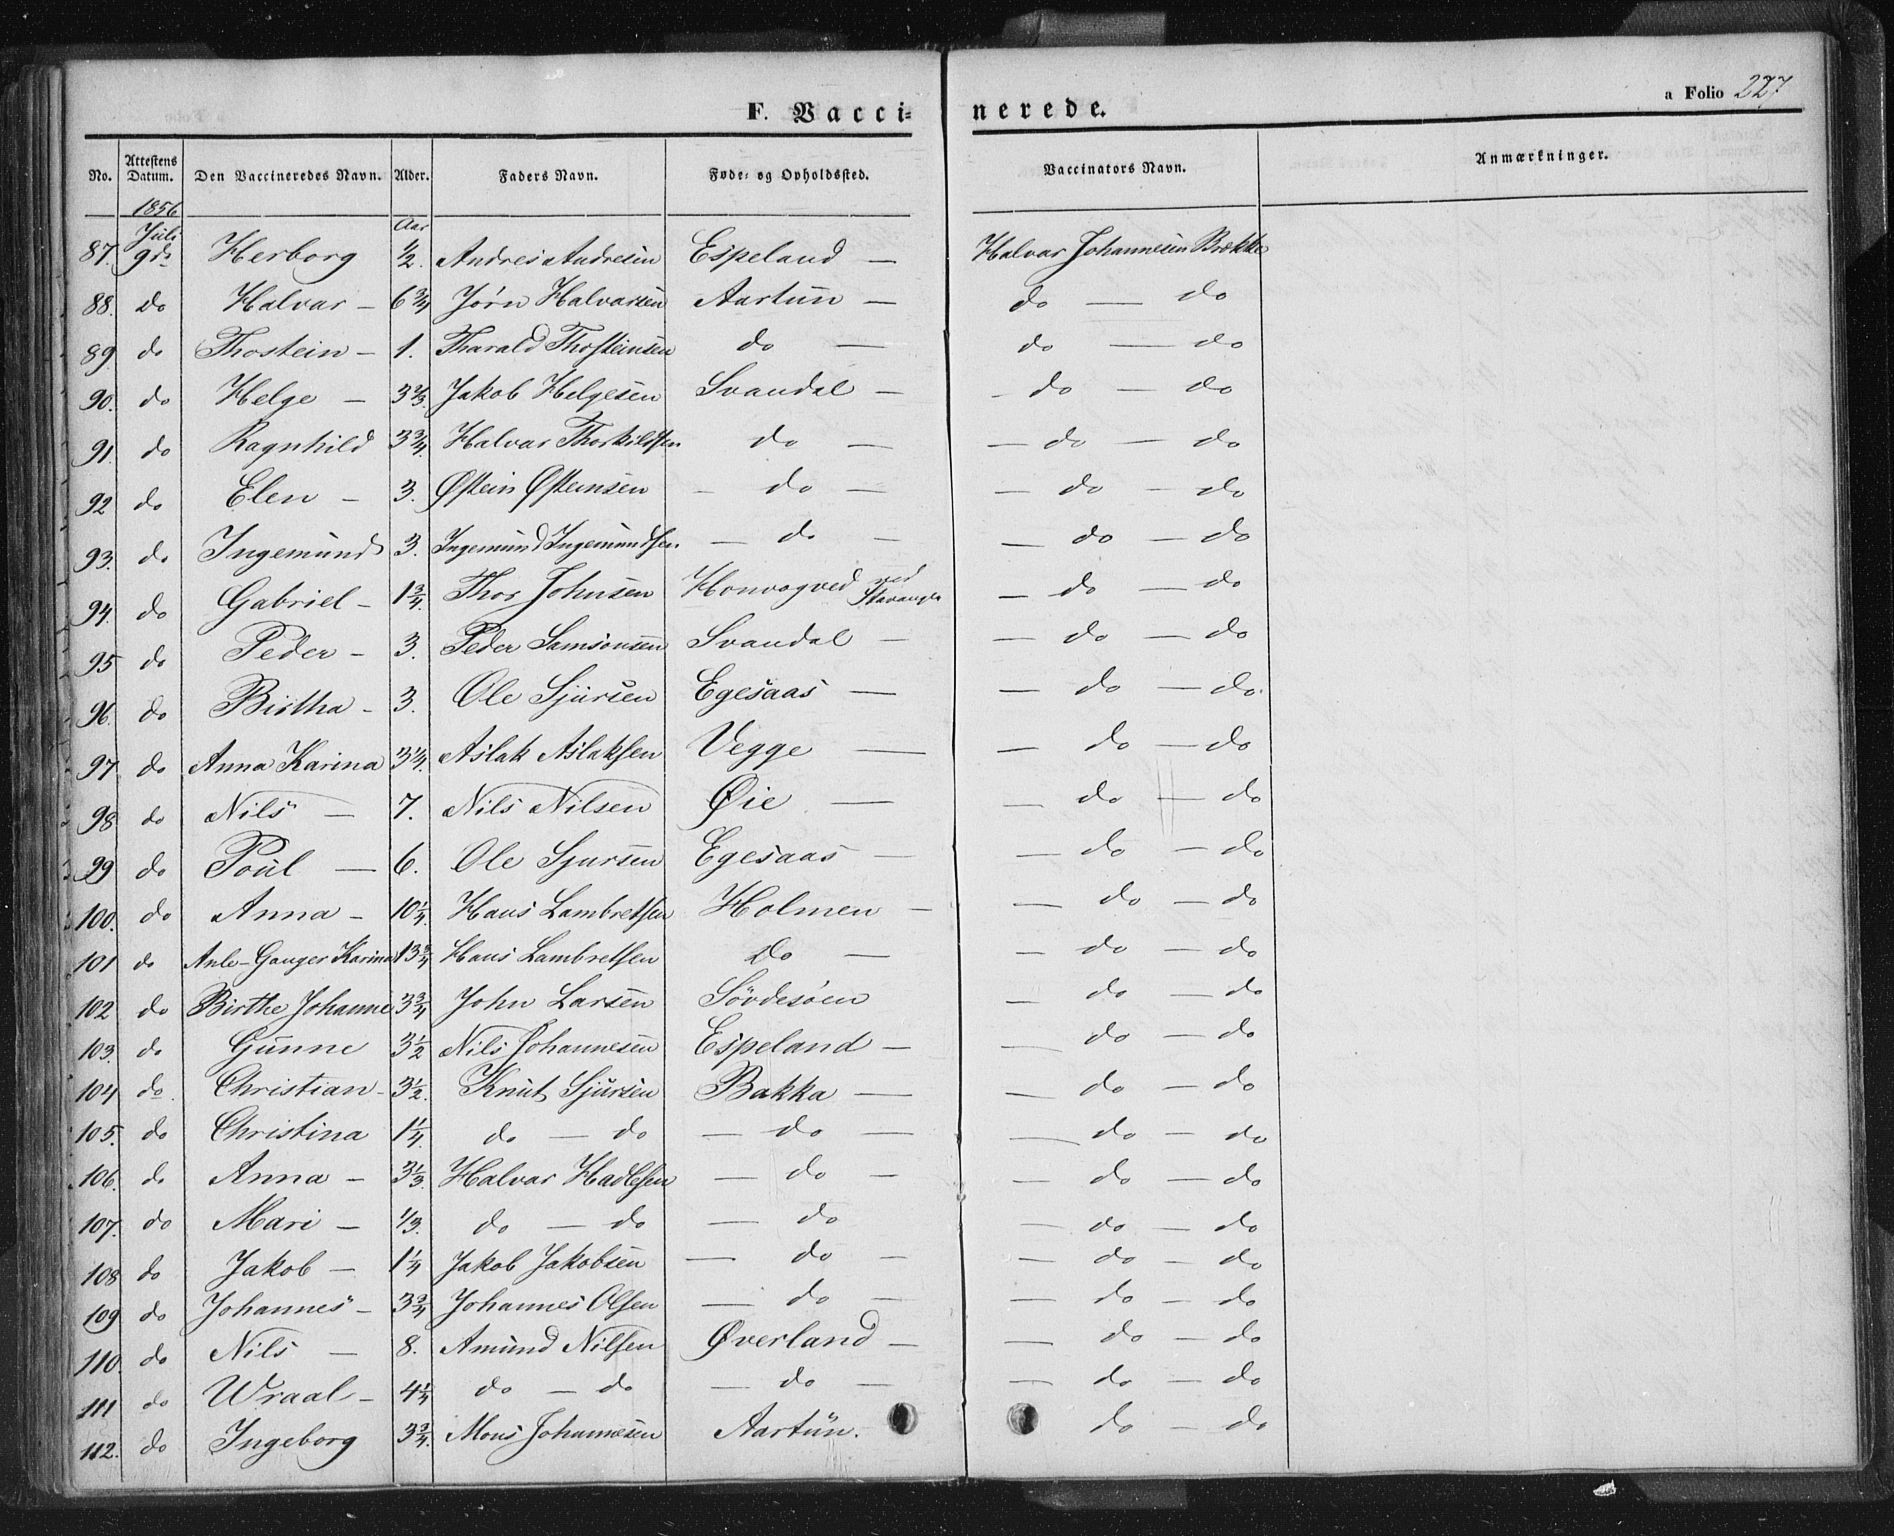 a Folio 227
F. Vaccinerede.
No. Attestens Datum. Den Vaccineredes Navn. Alder. Faders Navn. Føde- og Opholdssted. Vaccinators Navn. Anmærkninger.
1856 Juli Aar
87. 9de Herborg 1/2. Andreis Andresen Espeland — Halvar Johannesen Brække
88. do Halvar — 6 3/4 Jørn Halvarsen Aartun — do — do
89 do Thostein — 1. Tharald Thosteinsen do — do — do
90. do Helge — 3 2/3. Jakob Helgesen Svandal — do — do
91. do Ragnhild 3 3/4. Halvar Thorkildsen do — do — do
92 do Elen — 3. Østein Østeinsen — do — do — do
93. do Ingemund 3. Ingemund Ingemundsen — do — do — do
94. do Gabriel — 1 3/4. Thor Johnsen ved Stavanger — do — do
95 do Peder — 3. Peder Samsonsen Svandal — do — do
96. do Birtha — 3. Ole Sjursen Egesaas — do — do
97 do Anna Karina 3 1/4. Aslak Aslaksen Vegge — do — do
98 do Nils — 7. Nils Nilsen Øie — do — do
99 do Poul — 6. Ole Sjursen Egesaas — do — do
100. do Anna — 10 1/4. Hans Lambretsen Holmen — do — do
101 do Karina 13 3/4 Hans Lambretsen do — do — do
102 do Birthe Johanne 3 3/4 John Larsen Søvdesøen — do — do
103. do Gunne 3 1/2 Nils Johannesen Espeland — do — do
104 do. Christian — 3 1/2. Knut Sjursen Bakka — do — do
105. do Christina 1 1/4. do — do — do — do — do
106. do Anna — 3 1/3. Halvar Hadlesen — do — do — do
107. do Mari — 1/3. do — do — do — do — do
108 do Jakob — 1 1/4 Jakob Jakobsen — do — do — do
109 do Johannes — 3 3/4 Johannes Olsen — do — do — do
110. do Nils — 8. Amund Nilsen Øverland — do — do
111 do Wraal — 4 1/4 do — do — do — do — do
112. do Ingeborg 3 3/4. Mons Johannesen Aartun. do — do